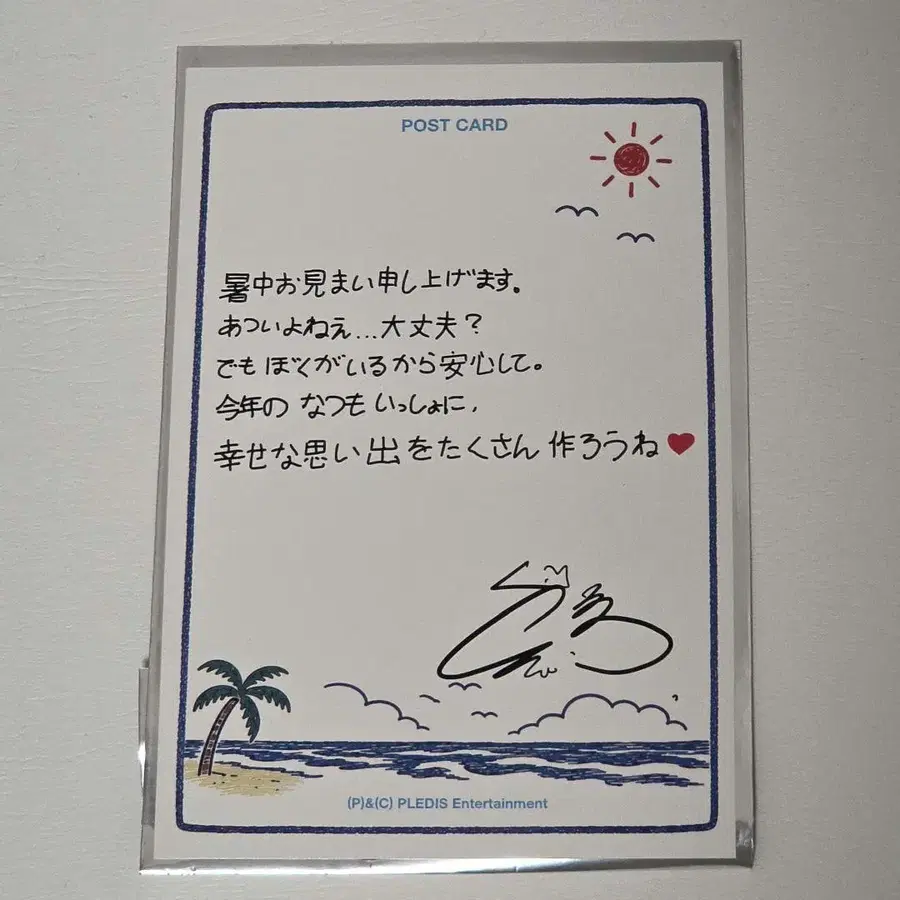 POST CARD
暑中お見まい申し上げます。
あついよねぇ...大丈夫？
でもぼくがいるから安心して。
今年の なつも いっしょに、
幸せな思い出をたくさん作ろうね♥
(P)&(C) PLEDIS Entertainment